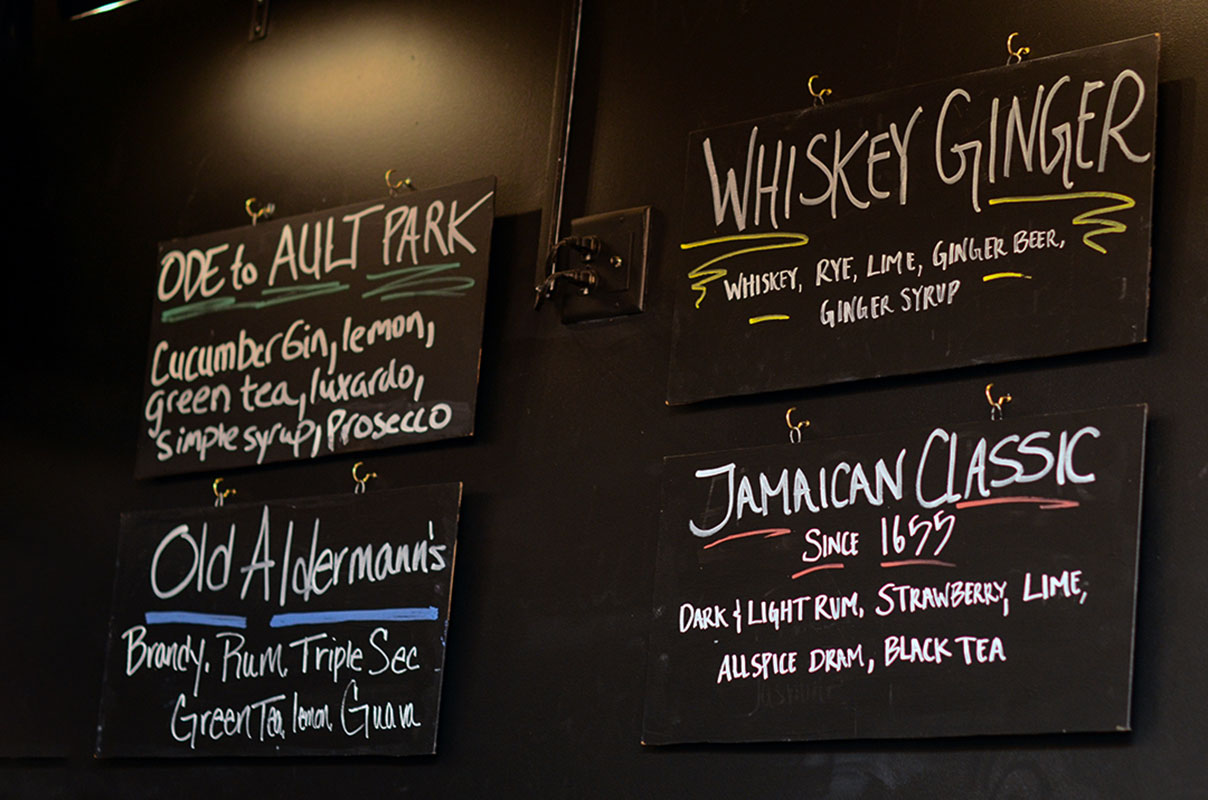 ODE to AULT PARK
Cucumber Gin, lemon,
green tea, luxardo,
simple syrup, Prosecco
Old Aldermann's
Brandy. Rum. Triple Sec
Green Tea. lemon. Guava
WHISKEY GINGER
WHISKEY, RYE, LIME, GINGER BEER,
GINGER SYRUP
JAMAICAN CLASSIC
SINCE 1655
DARK & LIGHT RUM, STRAWBERRY, LIME,
ALLSPICE DRAM, BLACK TEA